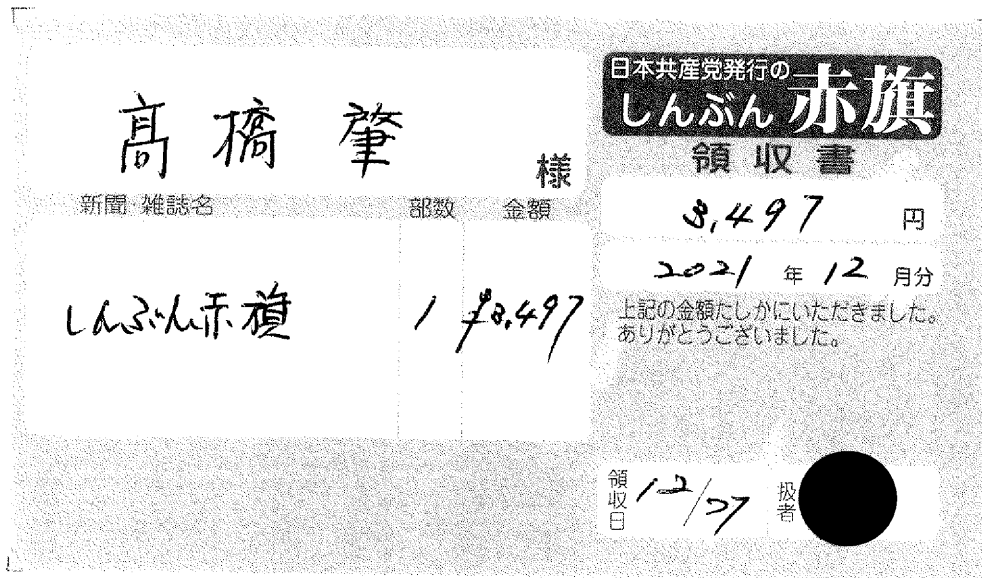 髙橋 肇 様
新聞・雑誌名 部数 金額
しんぶん赤旗 1 ¥3,497
日本共産党発行の
しんぶん赤旗
領収書
3,497 円
2021 年 12 月分
上記の金額たしかにいただきました。
ありがとうございました。
領収日 12/27 扱者